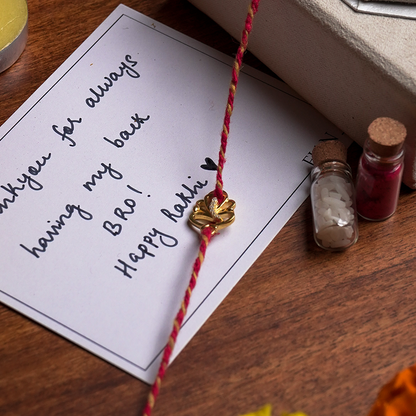 ankyou for always
having my back
BRO!
Happy Rakhi ♥